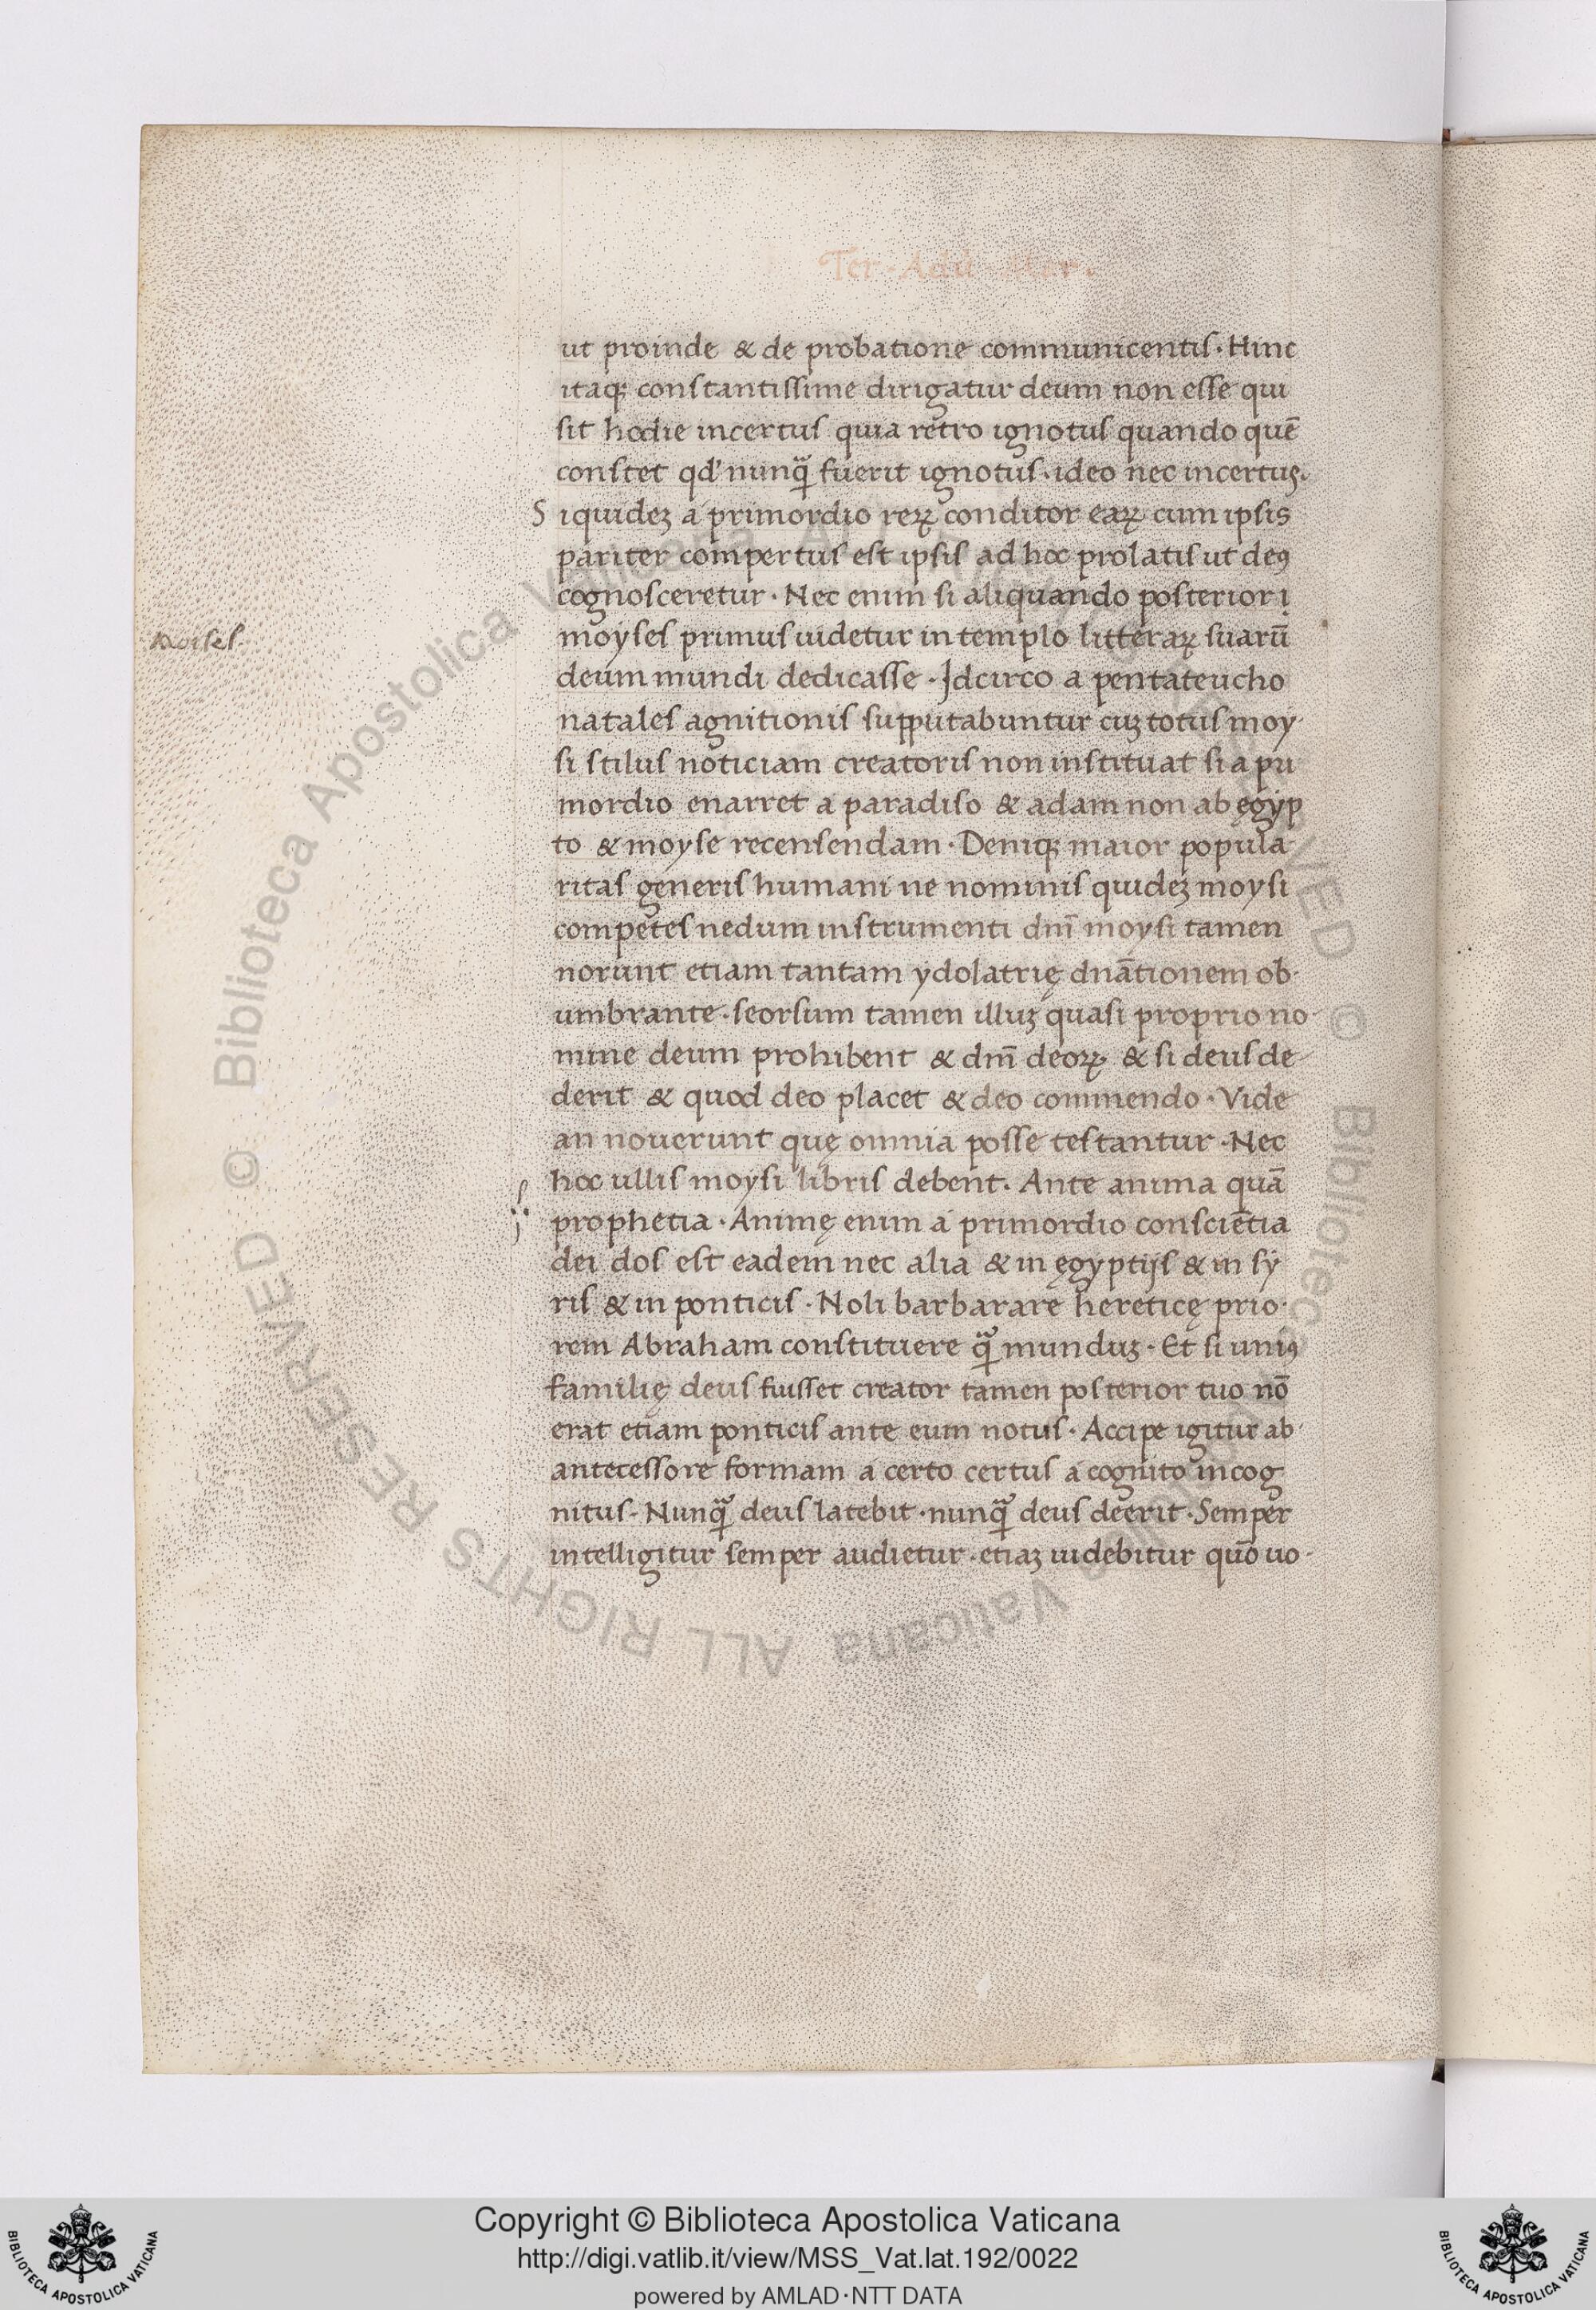 Ter · Adu · Mar ·
ut proinde & de probatione communicentis · Hinc
itaqꝫ constantissime dirigatur deum non esse qui
sit hodie incertus quia retro ignotus quando quē
constet qđ nunqᷓ fuerit ignotus · ideo nec incertus.
S iquideꝫ a primordio reꝝ conditor eaꝝ cum ipsis
pariter compertus est ipsis ad hoc prolatis ut deꝰ
cognosceretur · Nec enim si aliquando posteriori
Moises.
moyses primus uidetur in templo litteraꝝ suarū
deum mundi dedicasse · Idcirco a pentateucho
natales agnitionis supputabuntur cuꝫ totus moy
si stilus noticiam creatoris non instituat si a pri
mordio enarret a paradiso & adam non ab ęgyp
to & moyse recensendam · Deniqꝫ maior popula
ritas generis humani ne nominis quideꝫ moysi
competes nedum instrumenti dnī moysi tamen
norunt etiam tantam ydolatrię dnātionem ob
umbrante · seorsum tamen illuꝫ quasi proprio no
mine deum prohibent & dnī deoꝝ & si deus de
derit & quod deo placet & deo commendo · Vide
an nouerunt quę omnia posse testantur · Nec
hoc ullis moysi libris debent. Ante anima quā
prophetia · Animę enim a primordio consciētia
dei dos est eadem nec alia & in ęgyptijs & in sy
ris & in ponticis · Noli barbarare hereticę prio
rem Abraham constituere qᷓ mundus · Et si uniꝰ
familię deus fuisset creator tamen posterior tuo nō
erat etiam ponticis ante eum notus · Accipe igitur ab
antecessore formam a certo certus a cognito incog
nitus - Nunqᷓ deus latebit · nunqᷓ deus deerit · Semper
intelligitur semper audietur · etiaꝫ uidebitur quō uo
Copyright © Biblioteca Apostolica Vaticana
http://digi.vatlib.it/view/MSS_Vat.lat.192/0022
powered by AMLAD·NTT DATA
BIBLIOTECA APOSTOLICA VATICANA
BIBLIOTECA APOSTOLICA VATICANA
Biblioteca Apostolica Vaticana ALL RIGHTS RESERVED © Biblioteca Apostolica Vaticana ALL RIGHTS RESERVED ©